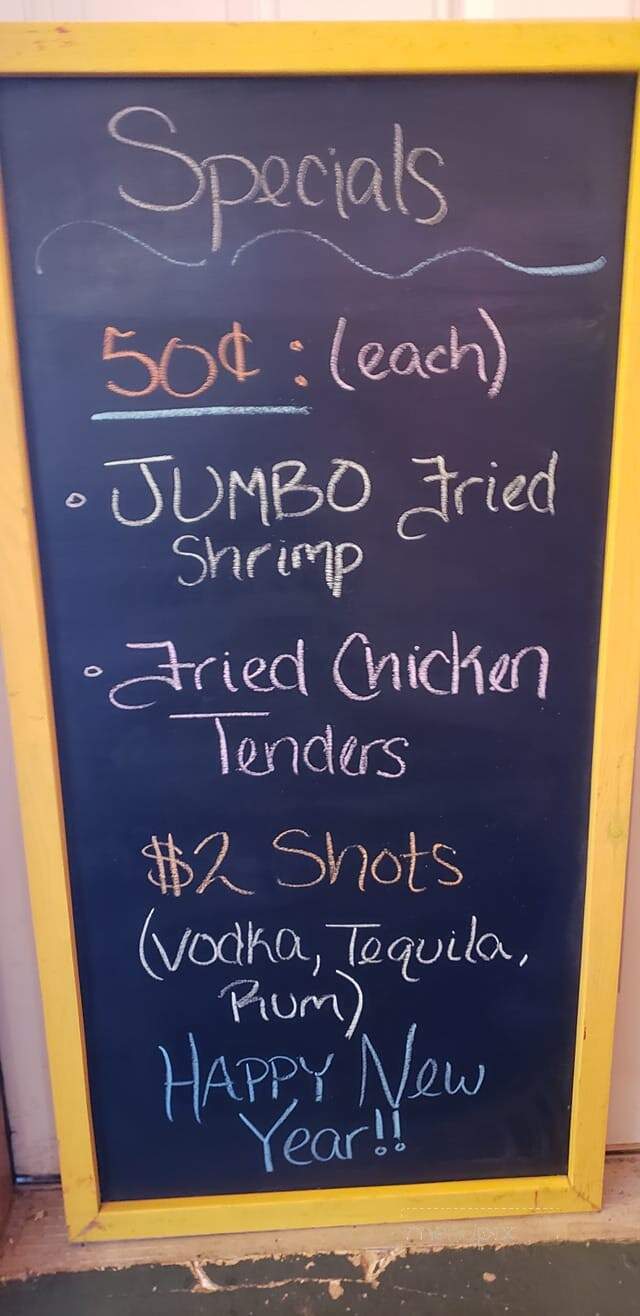 Specials
50¢: (each)
• JUMBO Fried
Shrimp
• Fried Chicken
Tenders
$2 Shots
(Vodka, Tequila,
Rum)
HAPPY New
Year!!